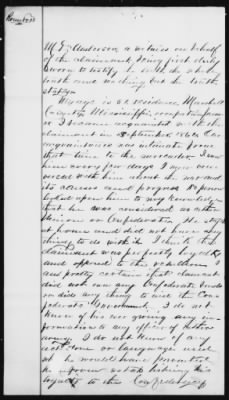 M E Anderson a witness on behalf
of the claimant being first duly
sworn to testify to the whole
truth and nothing but the truth
states
My age is residence Marshall
County Mississippi, occupation
I became acquainted with the
claimant in September 1862 our
acquaintance was intimate from
that time to the surrender I saw
him every few days I con-
versed with him about the war and
its causes and progress
upon to my
that he was considered as either
Union or Confederate He staid
at home and did not have any
thing to do with it I think the
claimant was perfectly loyal
and opposed to the rebellion I
am pretty certain that claimant
did not own any Confederate bonds
or did any thing to aid the Con-
federate Government I do not
know of his ever giving any in-
formation to any officer of either
army. I do not know of any
act done or language used
that he would have prevented
him from establishing his
loyalty to the Confederacy